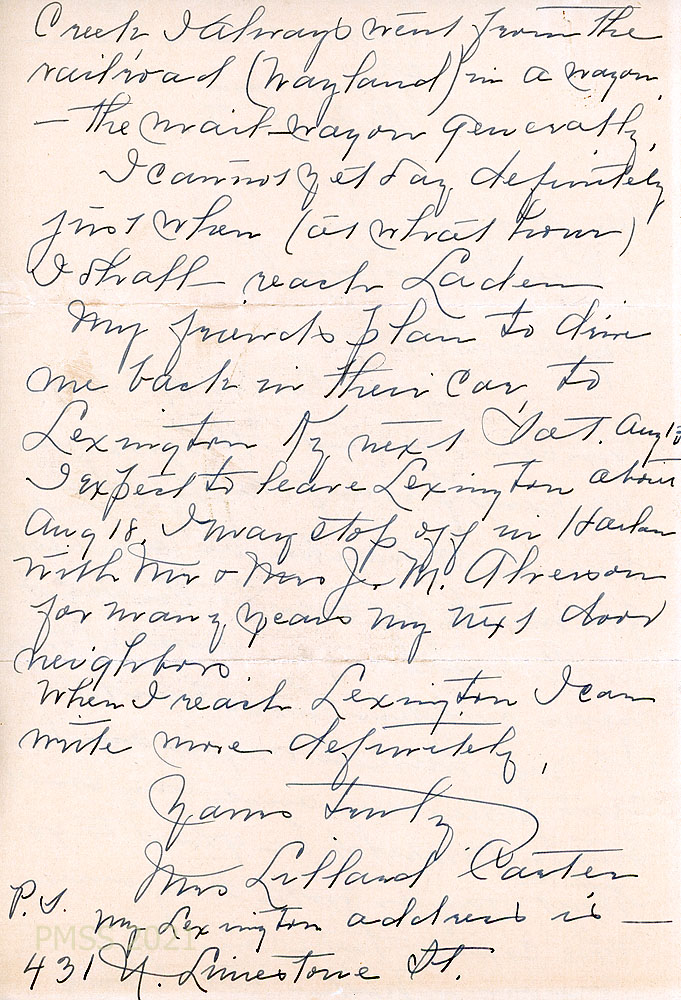 Creek I always went from the
railroad (Wayland) in a wagon
– the mail-wagon generally.
I cannot yet say definitely
just when (at what hour)
I shall reach Laden
My friends plan to drive
me back in their car, to
Lexington Ky next Sat. Aug 13
I expect to leave Lexington about
Aug 18. I may stop off in Harlan
with Mr & Mrs J. M. Alverson
for many years my next door
neighbors
When I reach Lexington I can
write more definitely.
Yours truly
Mrs Lilland Carter
P.S. my Lexington address is —
431 N. Limestone St.
PMSS 2021